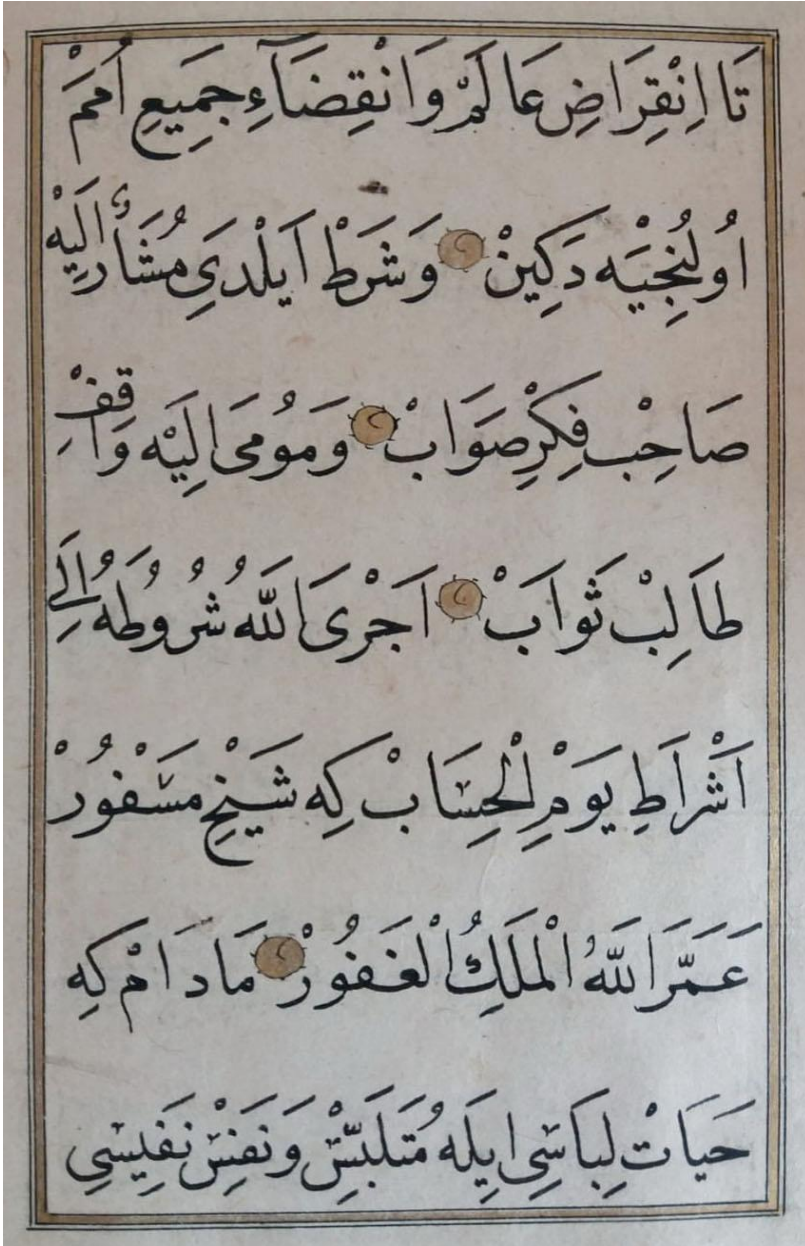 تَا اِنْقِرَاضِ عَالَمْ وَانْقِضَآءِ جَمِيعِ اُمَمْ
اُولُنْجِيَه دَكِينْ وَشَرَطْ اَيْلَدىِ مُشَارٌ اِلَيْهْ
صَاحِبِ فِكْرِ صَوَابْ وَمُومَى اِلَيْه وَاقِفِ
طَالِبْ ثَوَابْ اَجْرَى اللّٰه شُرُوطَهُ اِلَى
اَشْرَاطِ يَوْمِ الْحِسَابْ كِه شَيْخِ مَسْفُورْ
عَمَّرَ اللّٰهُ الْمَلَكُ الْغَفُورْ مَادَامْ كِه
حَيَاتْ لِبَاسِى اِيلَه مُتَلَبِّسْ وَنَفْسْ نَفِيسِى